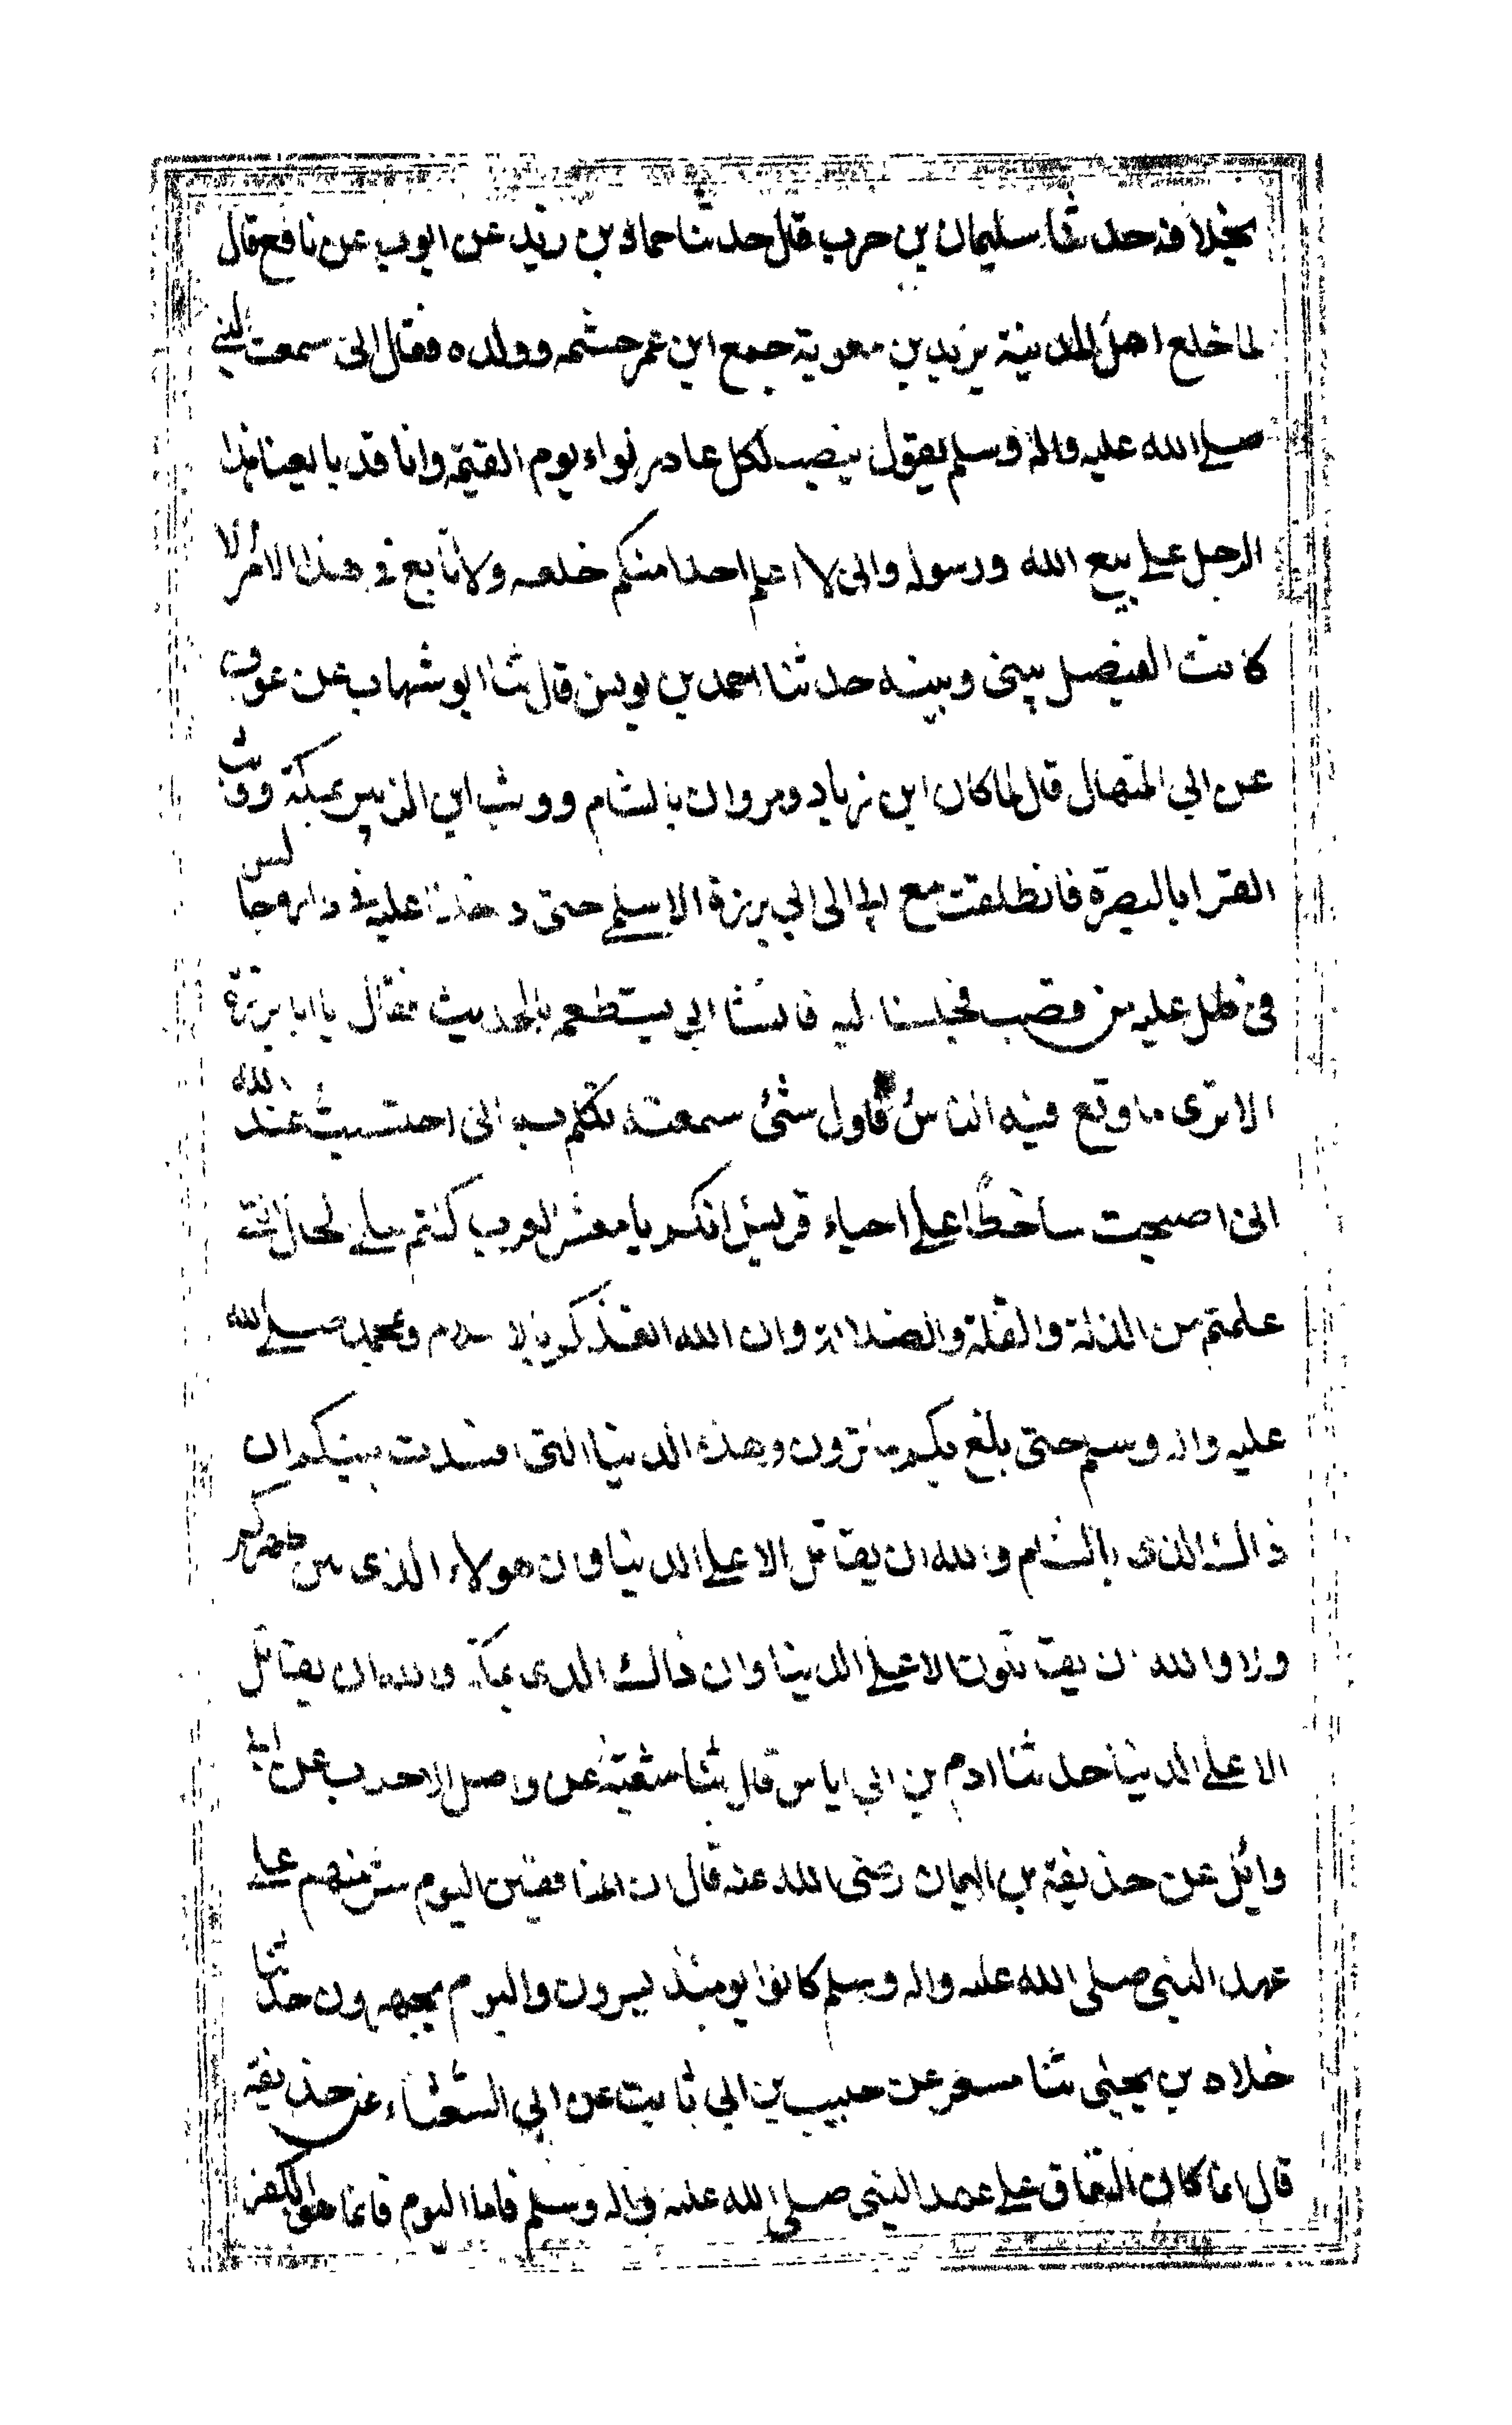 بخلافه حدثنا سليمان بن حرب قال حدثنا حماد بن زيد عن ايوب عن نافع قال
لما خلع اهل المدينة يزيد بن معوية جمع ابن عمر حشمه وولده فقال انى سمعت النبي
صلى الله عليه واله وسلم يقول ينصب لكل غادر لواء يوم القيمة وانا قد بايعنا هذا
الرجل على بيع الله ورسوله وانى لا اعلم احدا منكم خلعه ولا تابع في هذا الامر الا
كانت الفيصل بينى وبينه حدثنا احمد بن يونس قال ثنا ابو شهاب عن عوف
عن ابي المنهال قال لما كان ابن زياد ومروان بالشام ووثب ابن الزبير بمكة ووثب
القرا بالبصرة فانطلقت مع ابي الى ابي برزة الاسلمي حتى دخلنا عليه في داره جالس
في ظل عليه من قصب فجلسنا اليه فانشا ابي يستطعمه بالحديث فقال يا ابا برزة
الا ترى ما وقع فيه الناس فاول شئ سمعته تكلم به انى احتسبت عند الله
انى اصبحت ساخطا على احياء قريش انكم يا معشر العرب كنتم على الحال التى
علمتم من الذلة والقلة والضلالة وان الله انقذكم بالاسلام وبمحمد صلى الله
عليه واله وسلم حتى بلغ بكم ما ترون وهذه الدنيا التى افسدت بينكم ان
ذاك الذى بالشام والله ان يقاتل الا على الدنيا وان هولاء الذى بين ظهركم
ولا والله ان يقاتلون الا على الدنيا وان ذاك الذى بمكة والله ان يقاتل
الا على الدنيا حدثنا ادم بن ابي اياس قال ثنا شعبة عن واصل الاحدب عن ابي
وائل عن حذيفة بن اليمان رضى الله عنه قال ان المنافقين اليوم شر منهم على
عهد النبي صلى الله عليه واله وسلم كانوا يومئذ يسرون واليوم يجهرون حدثنا
خلاد بن يحيى ثنا مسعر عن حبيب بن ابي ثابت عن ابي الشعثاء عن حذيفة
قال انما كان النفاق على عهد النبي صلى الله عليه واله وسلم فاما اليوم فانما هو الكفر